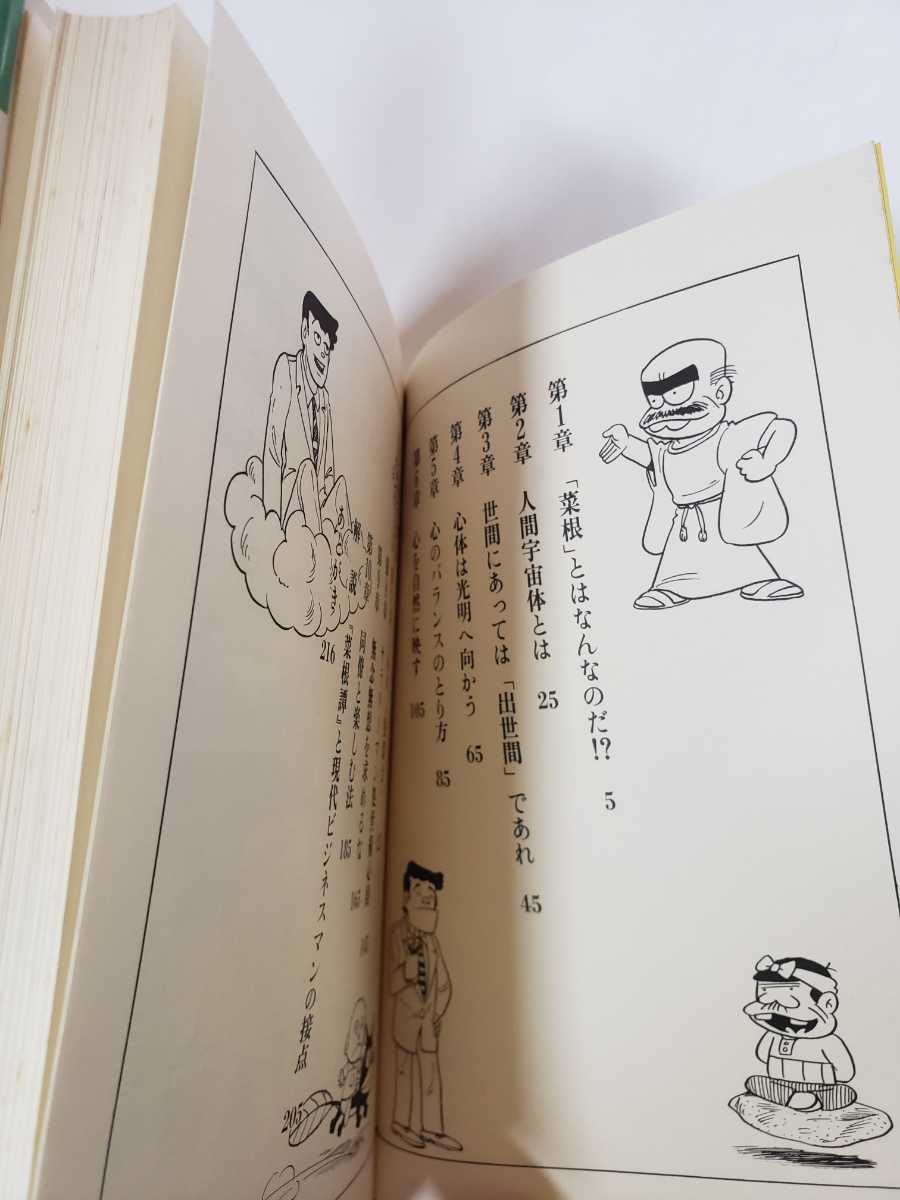 第1章 「菜根」とはなんなのだ!? 5
第2章 人間宇宙体とは 25
第3章 世間にあっては「出世間」であれ 45
第4章 心体は光明へ向かう 65
第5章 心のバランスのとり方 85
第6章 心を自然に映す 105
無念無想を求めるな 165
第10章 同僚と楽しむ法 185
解説 『菜根譚』と現代ビジネスマンの接点 205
あとがき 216